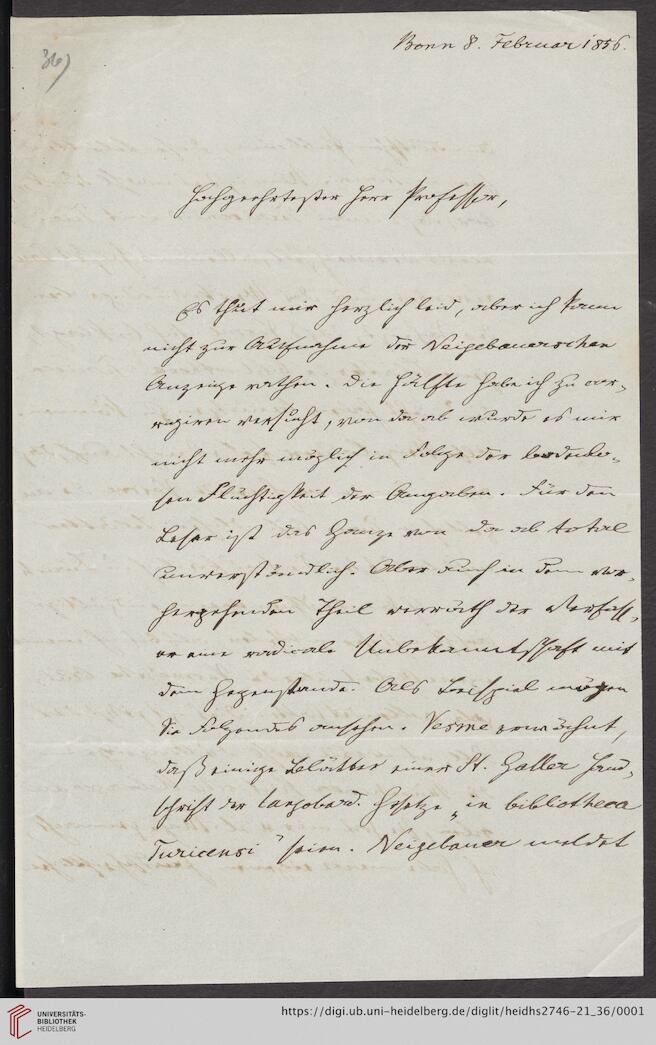 36)
Bonn 8. Februar 1856.
Hochgeehrtester Herr Professor,
Es thut mir herzlich leid, aber ich kann
nicht zur Aufnahme der Neigebauerschen
Anzeige rathen. Die Hälfte habe ich zu cor-
rigiren versucht, von da ab wurde es mir
nicht mehr möglich in Folge der bodenlo-
sen Flüchtigkeit der Angaben. Für den
Leser ist das Ganze von da ab total
unverständlich. Aber auch in dem vor-
hergehenden Theil verräth der Verfass-
er eine radicale Unbekanntschaft mit
dem Gegenstande. Als Beispiel mögen
Sie Folgendes ansehen. Vesme erwähnt,
daß einige Blätter einer St. Galler Hand-
schrift der langobard. Gesetze „in bibliotheca
Turicensi" seien. Neigebauer meldet
UNIVERSITÄTS-
BIBLIOTHEK
HEIDELBERG
https://digi.ub.uni-heidelberg.de/diglit/heidhs2746-21_36/0001